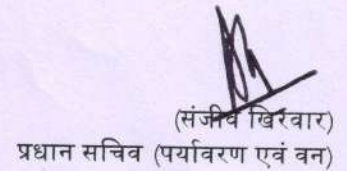 (संजीव खिरवार)
प्रधान सचिव (पर्यावरण एवं वन)